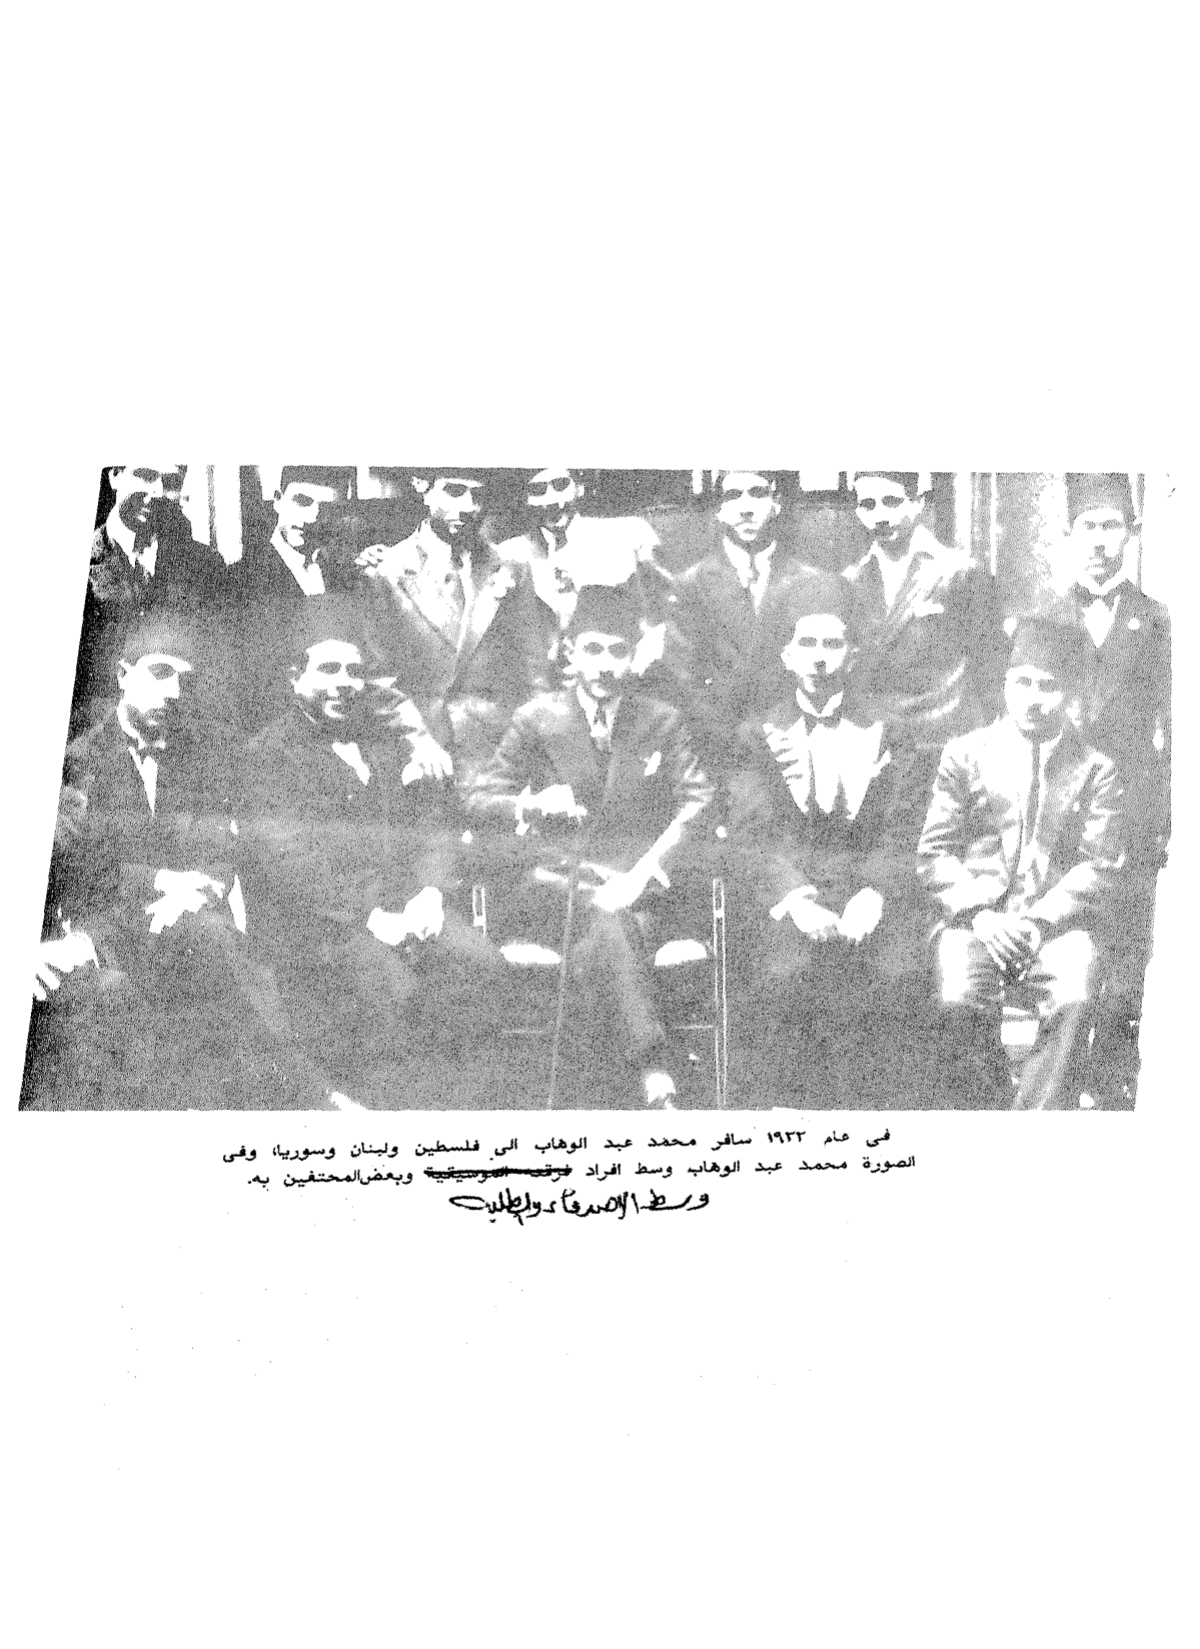 فى عام ١٩٢٢ سافر محمد عبد الوهاب الى فلسطين ولبنان وسوريا، وفى
الصورة محمد عبد الوهاب وسط افراد فرقته الموسيقية وبعض المحتفين به.
وسط الاصدقاء والطلبه